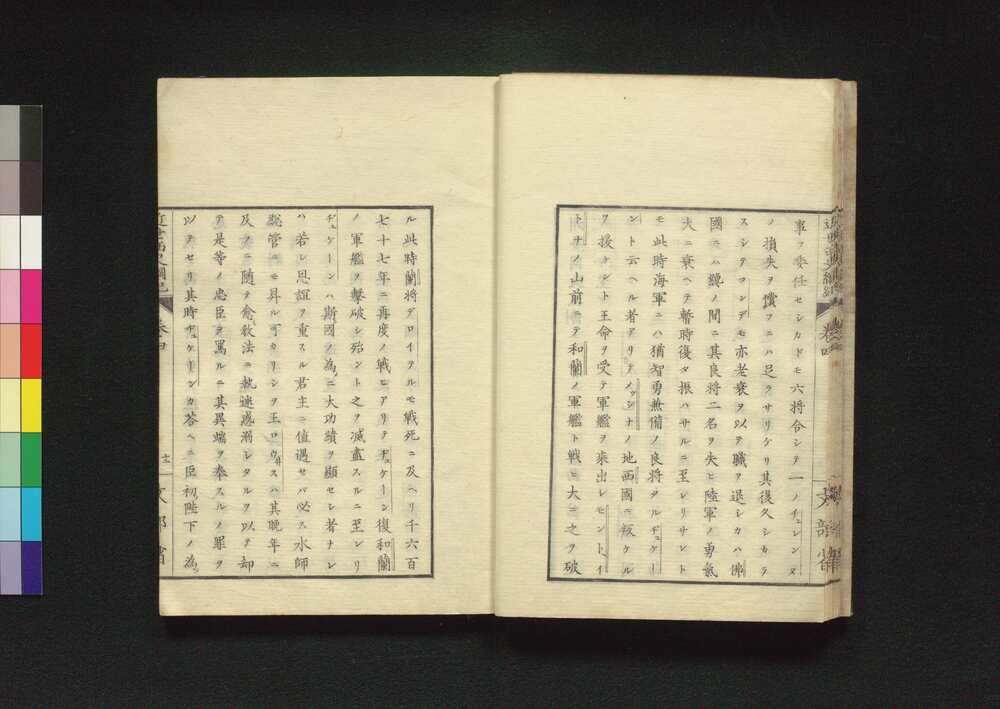 事ヲ委任セシカドモ六将合シテ一ノチュレンヌ
ノ損失ヲ償フニハ足ラサリケリ其後久シカラ
スシテコンデモ亦老衰ヲ以テ職ヲ退レカハ佛
國ニハ纔ノ間ニ其良将二名ヲ失ヒ陸軍ノ勇氣
大ニ衰ヘテ暫時復タ振ハサルニ至レリサレト
モ此時海軍ニハ猶智勇兼備ノ良将ヲルヂュケー
ント云ヘル者アリテメッシナノ地西國ニ叛ケル
ヲ援ケント王命ヲ受テ軍艦ヲ乘出レモントイ
ヒサノ山前ニテ和蘭ノ軍艦ト戦ヒ大ニ之ヲ破
ル此時蘭将デロイテルモ戦死ニ及ヘリ千六百
七十七年ニ再度ノ戦ヒアリテヂュケーン復和蘭
ノ軍艦ヲ擊破シ殆ント之ヲ滅盡スルニ至レリ
ヂュケーンハ斯國ノ為ニ大功績ヲ顯セレ者ナレ
ハ若レ恩誼ヲ重スル君主ニ値遇セハ必ス水師
總管ニモ昇ル可カリシヲ王ロウイスハ其晩年ニ
及ヲニ随ヲ愈教法ニ執迷惑溺レタルヲ以テ却
テ是等ノ忠臣ヲ罵ルニ其異端ヲ奉スルノ罪ヲ
以テセリ其時ヂュケーンカ答ヘニ臣初陛下ノ為
近世西史綱紀
卷四
文部省